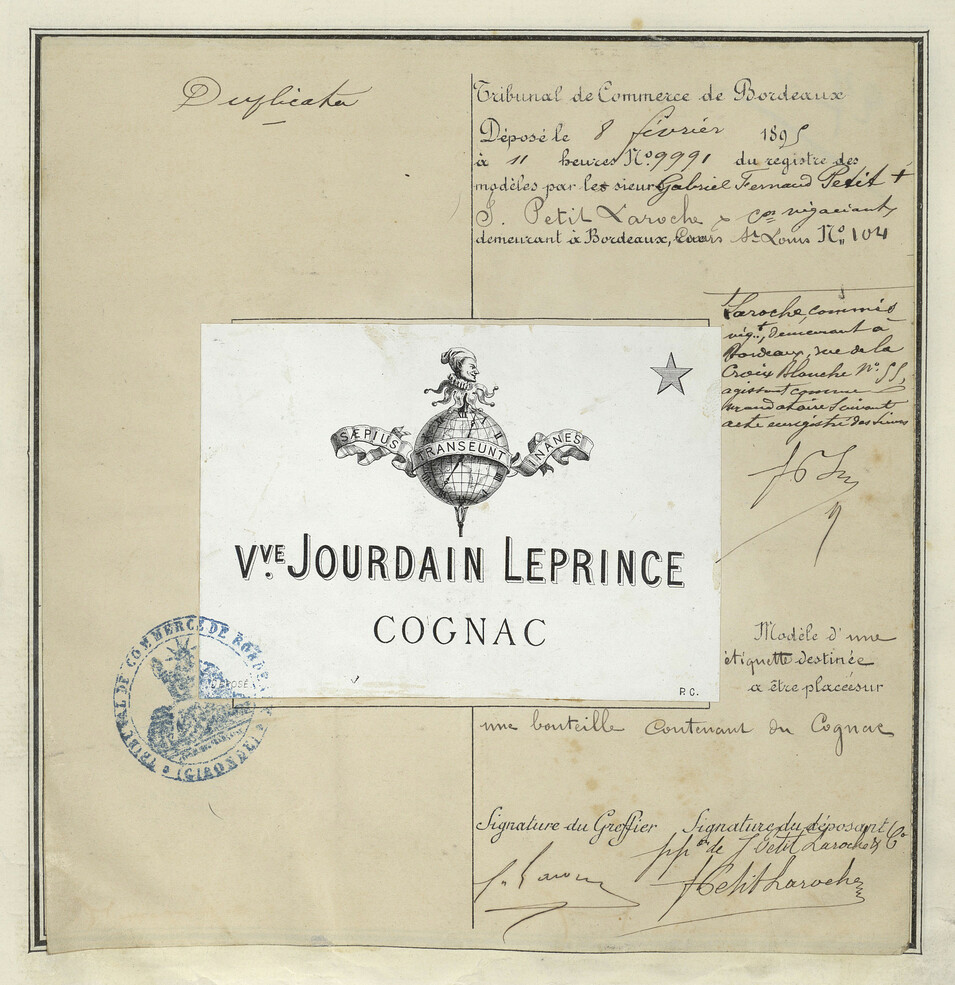 Duplicata
Tribunal de Commerce de Bordeaux
Déposé le 8 février 1895
à 11 heures No. 9991 du registre des
modèles par les sieur Gabriel Fernand Petit +
J. Petit Laroche & Cie négociants
demeurant à Bordeaux, Cours St Louis No 104
Laroche commis
négt, demeurant à
Bordeaux, rue de la
Croix Blanche No. 55,
agissant comme
mandataire suivant
acte enregistré des sieurs
SÆPIUS TRANSEUNT INANES
VVE JOURDAIN LEPRINCE
COGNAC
DÉPOSÉ
P. C.
TRIBUNAL DE COMMERCE DE BORDEAUX
(GIRONDE)
Modèle d'une
étiquette destinée
a être placée sur
une bouteille contenant du Cognac
Signature du Greffier Signature du déposant
ppon de J Petit Laroche & Co
Petit Laroche